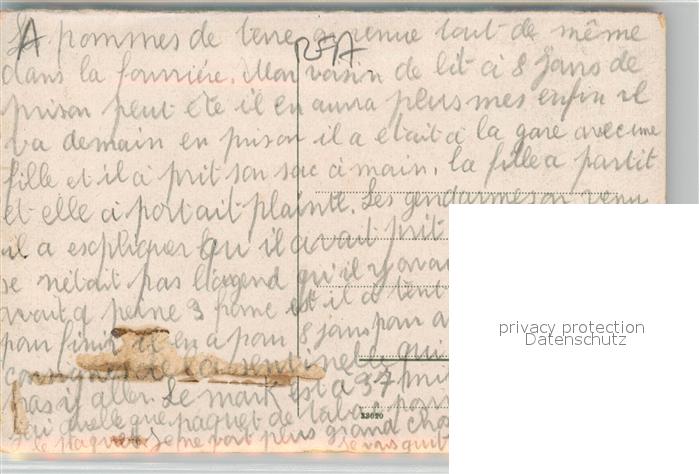 A pommes de terre a venue tout de même
REA
dans la fourriére. Mon voisin de lit a 8 Jours de
prison peut ete il en aura plus mes enfin il
va demain en prison il a etait a la gare avec une
fille et il a prit son sac a main. la fille a partit
et elle a portait plainte. Les gendarmes on venu
il a esspliquer qu il avait prit
se nétait pas l'agend qu'il y avai
avait a peine 3 franc et il a
pour finir il en a pour 8 Jours pour a
consigner de la sentinelle qui
pas y aller. Le mark est a 97
quelle que paquet de tabac pour
33020
le paquet Je me voit plus grand cho
je vous quit
privacy protection
Datenschutz